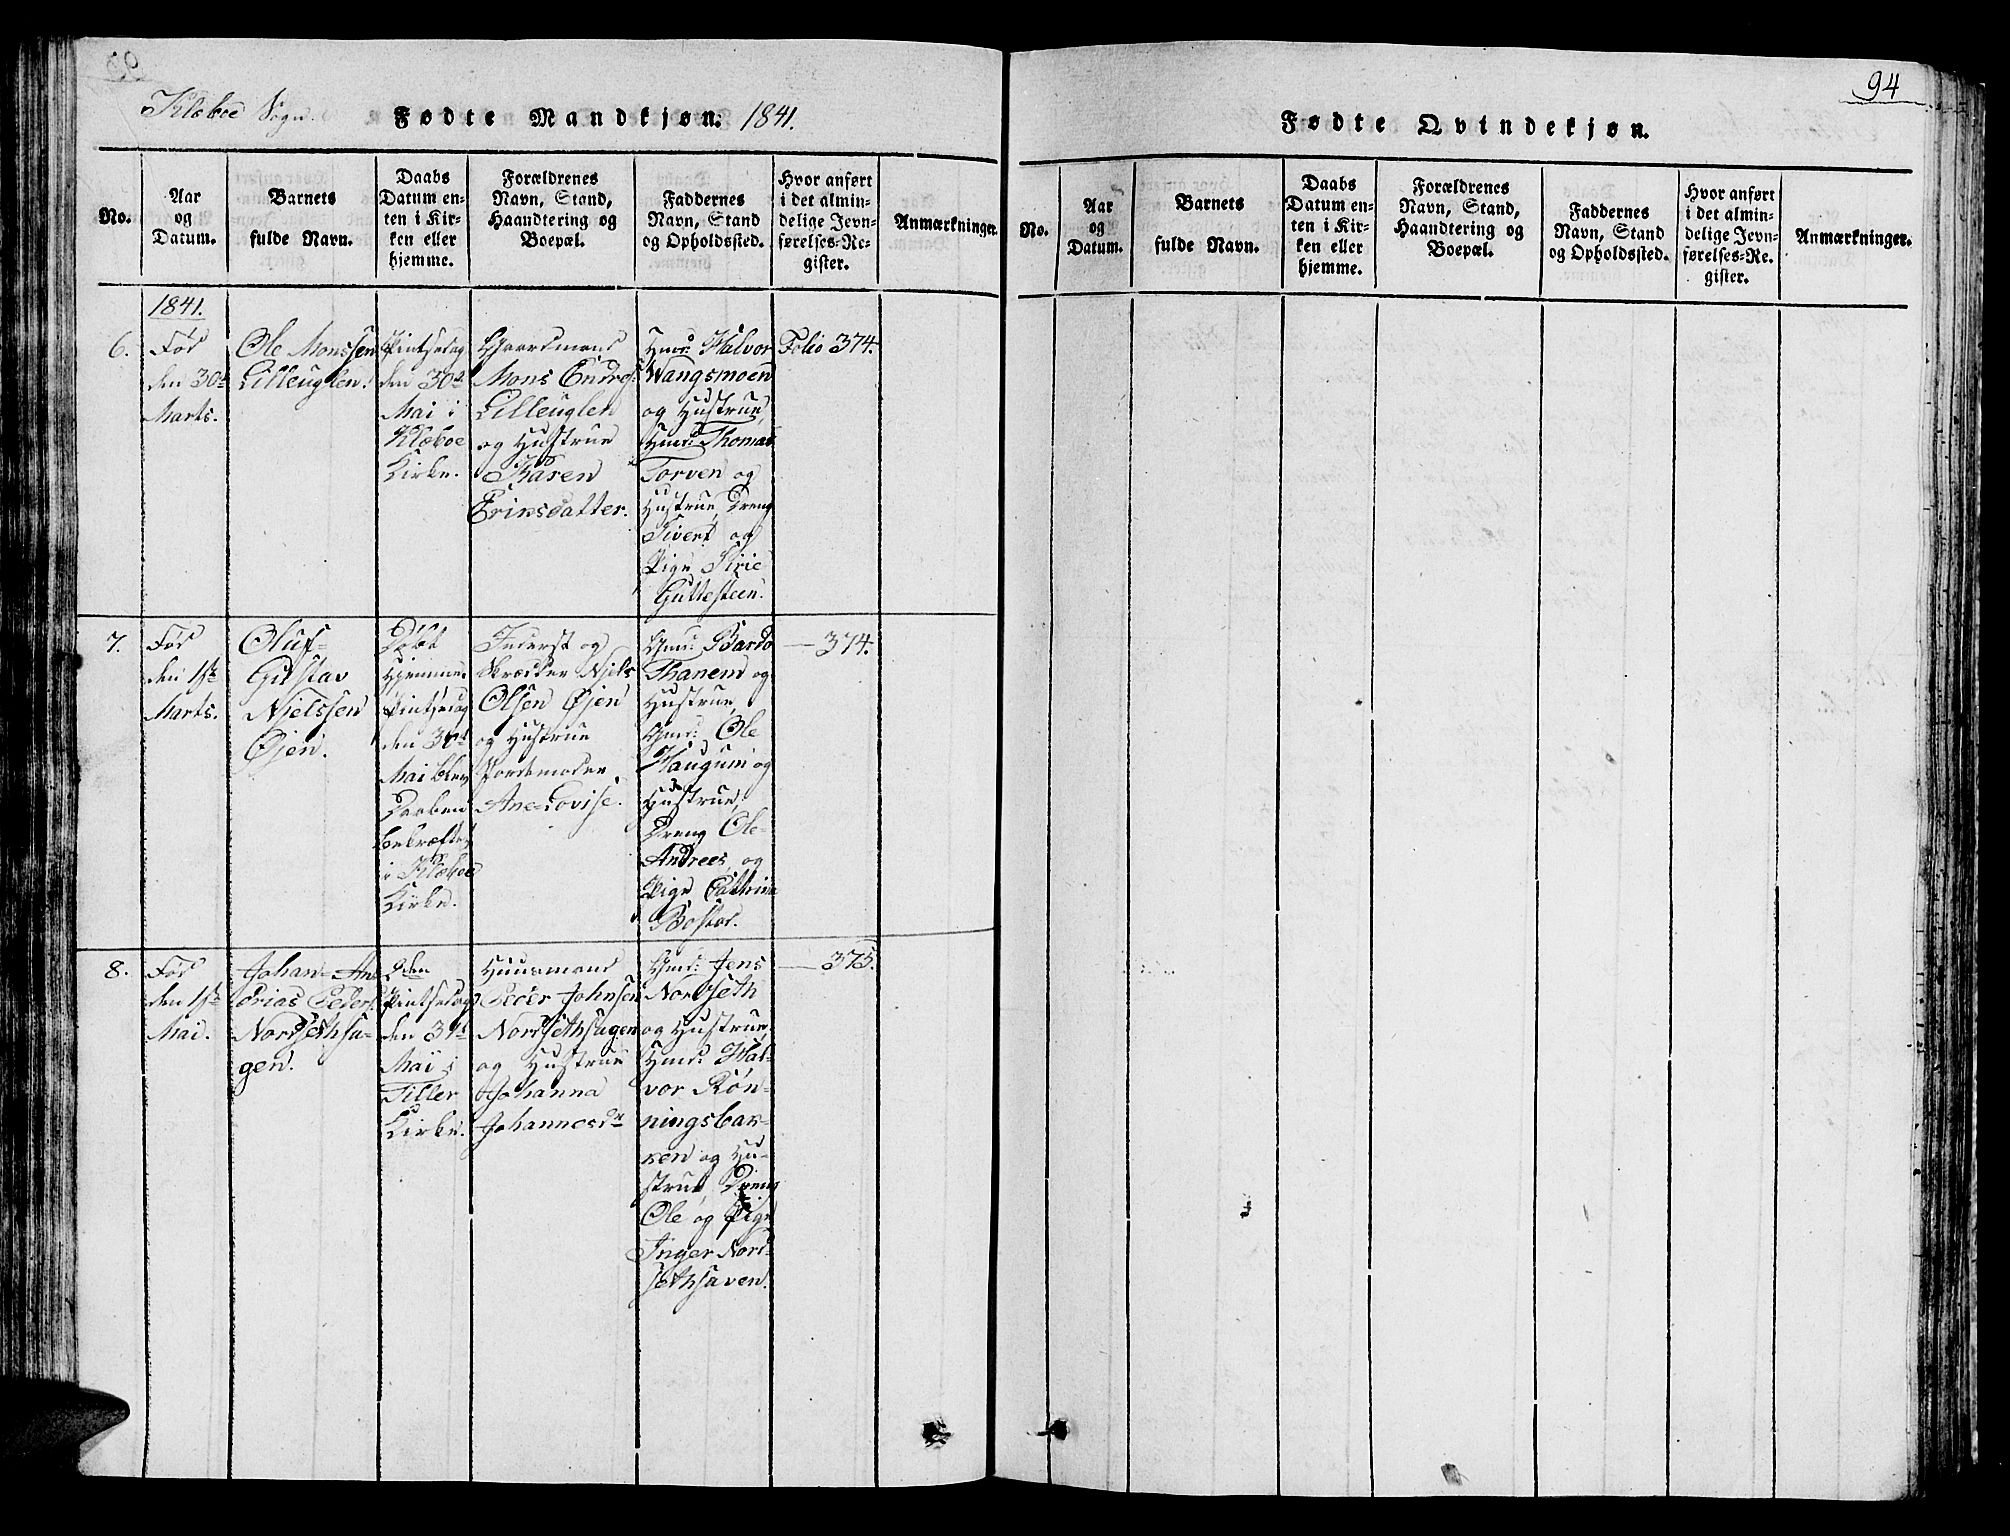 Klæboe Sogn. Fødte Mandkjøn. 1841.
No.
Aar
og
Datum.
Barnets
fulde Navn.
Daabs
Datum en-
ten i Kir-
ken eller
hjemme.
Forældrenes
Navn, Stand,
Haandtering og
Boepæl.
Faddernes
Navn, Stand
og Opholdssted.
Hvor anført
i det almin-
delige Jevn-
førelses-Re-
gister.
Anmærkninger.
1841.
6.
Fød
den 30te
Marts.
Ole Monssen
Lilleuglen.
Pintsedag
den 30te
Mai i
Klæboe
Kirke.
Gaardmand
Mons Endres:
Lilleuglen
og Hustrue
Karen
Erinsdatter.
Gmd: Halvor
Wangsmoen
og Hustrue,
Hmd: Thomas
Torven og
Hustrue, Dreng
Sivert og
Pige Sirie
Gullesteen.
Folio 374.
7.
Fød
den 1ste
Marts.
Oluf-
Gustav
Nielssen
Øjen.
Døbt
Hjemme.
Pintsedag
den 30te
Mai blev
Daaben
bekræftet
i Klæboe
Kirke.
Inderst og
Skrædder Niels
Olsen Øjen
og Hustrue
Jordemoder
Ane-Lovise.
Gmd: Bardo
Thanem og
Hustrue,
Gmd: Ole
Haugum og
Hustrue,
Dreng Ole-
Andrees og
Pige Cathrina
Bostad.
— 374.
8.
Fød
den 1ste
Mai.
Johan-An-
drias Peders:
Nordsethha-
gen.
2den
Pintsedag
den 31te
Mai i
Tiller
Kirke.
Huusmand
Peder Johnsen
Nordsethhagen
og Hustrue
Johanna
Johannesdr
Gmd: Jens
Nordseth
og Hustrue,
Hmd: Hal-
vor Røn-
ningsbak-
ken og Hu-
strue, Dreng
Ole og Pige
Inger Nord-
sethhaven.
— 375.
94
Fødte Qvindekjøn.
No.
Aar
og
Datum.
Barnets
fulde Navn.
Daabs
Datum en-
ten i Kir-
ken eller
hjemme.
Forældrenes
Navn, Stand,
Haandtering og
Boepæl.
Faddernes
Navn, Stand
og Opholdssted.
Hvor anført
i det almin-
delige Jevn-
førelses-Re-
gister.
Anmærkninger.